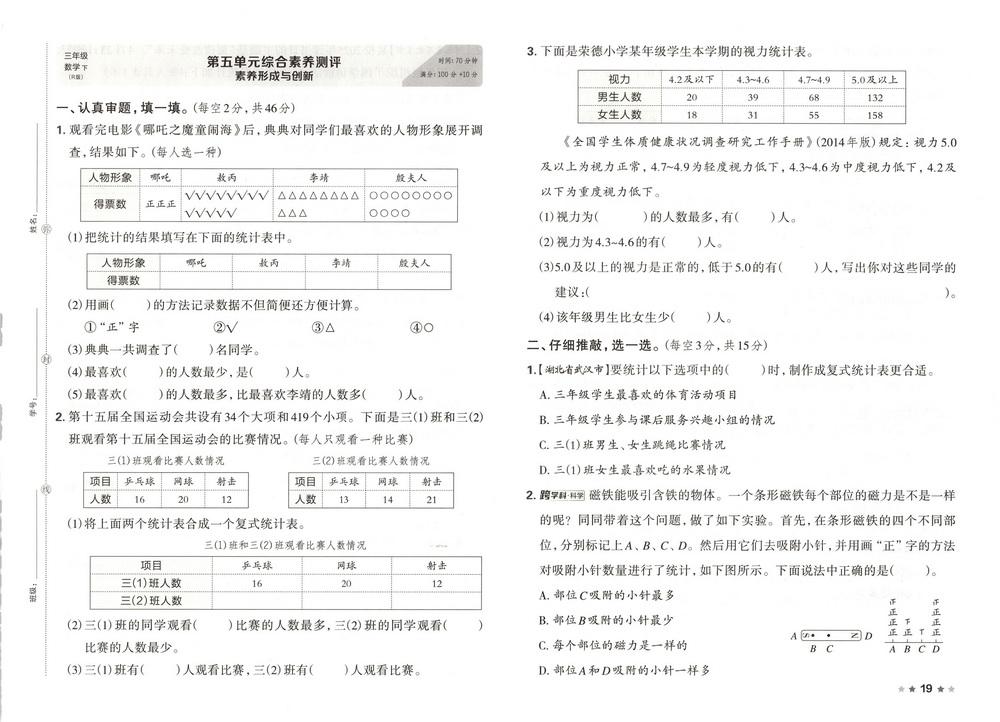 三年级
数学 下
(R版)
第五单元综合素养测评
素养形成与创新
时间:70分钟
满分:100分+10分
姓名:
学号:
班级:
弥
封
线
一、认真审题,填一填。(每空2分,共46分)
1. 观看完电影《哪吒之魔童闹海》后,典典对同学们最喜欢的人物形象展开调
查,结果如下。(每人选一种)
人物形象 哪吒 敖丙 李靖 殷夫人
得票数 正正正 √√√√√√√√ △△△△△△△△ ○○○○○○○○
√√√√√ △△△ ○○○○
(1)把统计的结果填写在下面的统计表中。
人物形象 哪吒 敖丙 李靖 殷夫人
得票数
(2)用画( )的方法记录数据不但简便还方便计算。
①“正”字 ②√ ③△ ④○
(3)典典一共调查了( )名同学。
(4)最喜欢( )的人数最少,是( )人。
(5)最喜欢( )的人数最多,比最喜欢李靖的人数多( )人。
2. 第十五届全国运动会共设有34个大项和419个小项。下面是三(1)班和三(2)
班观看第十五届全国运动会的比赛情况。(每人只观看一种比赛)
三(1)班观看比赛人数情况 三(2)班观看比赛人数情况
项目 乒乓球 网球 射击 项目 乒乓球 网球 射击
人数 16 20 12 人数 13 14 21
(1)将上面两个统计表合成一个复式统计表。
三(1)班和三(2)班观看比赛人数情况
项目 乒乓球 网球 射击
三(1)班人数 16 20 12
三(2)班人数
(2)三(1)班的同学观看( )比赛的人数最多,三(2)班的同学观看( )
比赛的人数最少。
(3)三(1)班有( )人观看比赛,三(2)班有( )人观看比赛。
3. 下面是荣德小学某年级学生本学期的视力统计表。
视力 4.2及以下 4.3~4.6 4.7~4.9 5.0及以上
男生人数 20 39 68 132
女生人数 18 31 55 158
《全国学生体质健康状况调查研究工作手册》(2014年版)规定:视力5.0
及以上为视力正常,4.7~4.9为轻度视力低下,4.3~4.6为中度视力低下,4.2及
以下为重度视力低下。
(1)视力为( )的人数最多,有( )人。
(2)视力为4.3~4.6的有( )人。
(3)5.0及以上的视力是正常的,低于5.0的有( )人,写出你对这些同学的
建议:( )。
(4)该年级男生比女生少( )人。
二、仔细推敲,选一选。(每空3分,共15分)
1.【湖北省武汉市】要统计以下选项中的( )时,制作成复式统计表更合适。
A. 三年级学生最喜欢的体育活动项目
B. 三年级学生参与课后服务兴趣小组的情况
C. 三(1)班男生、女生跳绳比赛情况
D. 三(1)班女生最喜欢吃的水果情况
2. 跨学科·科学 磁铁能吸引含铁的物体。一个条形磁铁每个部位的磁力是不是一样
的呢?同同带着这个问题,做了如下实验。首先,在条形磁铁的四个不同部
位,分别标记上A、B、C、D。然后用它们去吸附小针,并用画“正”字的方法
对吸附小针数量进行了统计,如下图所示。下面说法中正确的是( )。
A. 部位C吸附的小针最多
B. 部位B吸附的小针最少
C. 每个部位的磁力是一样的
D. 部位A和D吸附的小针一样多
A S N D
B C
正 正
正 正
正 下 正
正 正 T 正
A B C D
19